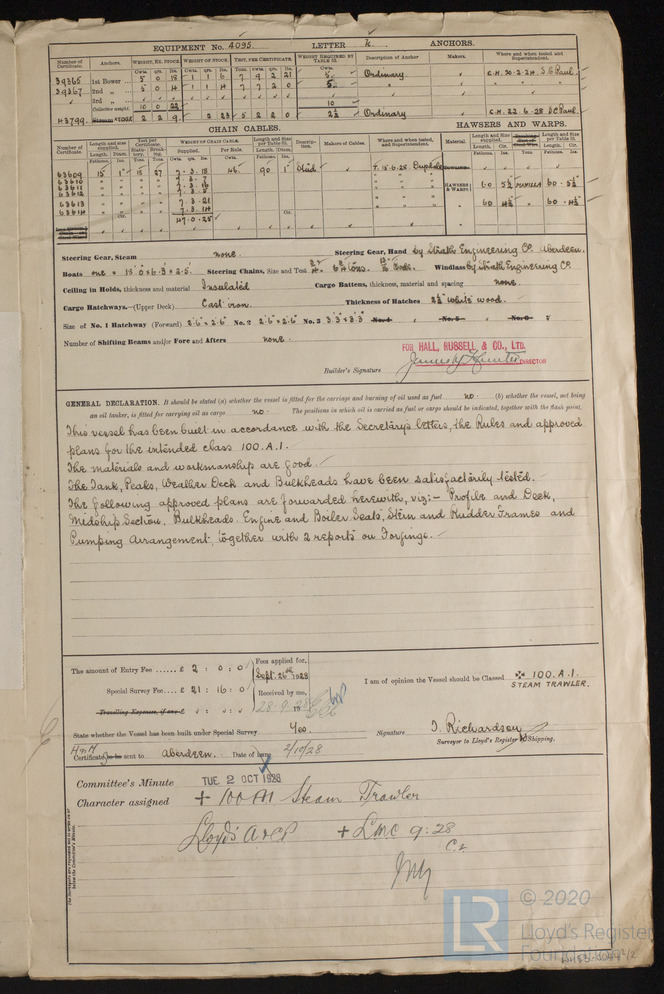 EQUIPMENT No. 4095. LETTER k. ANCHORS.
Number of Certificate. Anchors. WEIGHT, EX. STOCK. WEIGHT OF STOCK. TEST, PER CERTIFICATE. WEIGHT REQUIRED BY TABLE 53. Description of Anchor Makers. Where and when tested and Superintendent.
Cwts. qrs. lbs.
39365 1st Bower 5 0 18 1 1 6 7 9 2 21 5 Ordinary C.H. 20-2-24. Paul.
39367 2nd 5 0 14 1 1 4 7 7 2 0 5
3rd
Collective weight. 10 0 22 10
43799. 2 2 9 2 23 5 2 2 0 2½ Ordinary C.H. 22-6-28 Paul.
CHAIN CABLES. HAWSERS AND WARPS.
Number of Certificate. Length and size supplied. Test per Certificate. WEIGHT OF CHAIN CABLE. Length and Size per Table 53. Description. Makers of Cables. Where and when tested, and Superintendent. Material. Length and Size supplied. Length and Size per Table 53.
Length. Diam. Statutory. Breaking. Supplied. Per Rule. Length. Diam. Length. Cir.
Fathoms. Ins. Tons. Tons. Cwts. qrs. lbs. Cwts. Fathoms. Ins.
63609 15 1" 18 27 7.3.18 46 90 1" Stud T. 15.6.28
63610 7.3.7
63611 7.3.16 HAWSERS & WARPS. 60 5½ MANILLA 60 5½
63612 7.3.5
63613 7.3.21 60 4½ 60 4½
63614 7.3.14
47.0.25
Steering Gear, Steam none. Steering Gear, Hand by Strath Engineering Co. Aberdeen.
Boats one = 18'.0" x 6'.3" x 2'.5". Steering Chains, Size and Test Windlass by Strath Engineering Co.
Ceiling in Holds, thickness and material Insulated Cargo Battens, thickness, material and spacing none.
Cargo Hatchways.—(Upper Deck) Cast iron. Thickness of Hatches 2½" White wood.
Size of No. 1 Hatchway (Forward) 2'.6" x 2'.6" No. 2 2'.6" x 2'.6" No. 3 3'.3" x 3'.3" No. 4 No. 5 No. 6
Number of Shifting Beams and/or Fore and Afters none.
FOR HALL, RUSSELL & CO., LTD.
Builder's Signature DIRECTOR
GENERAL DECLARATION. It should be stated (a) whether the vessel is fitted for the carriage and burning of oil used as fuel no. (b) whether the vessel, not being
an oil tanker, is fitted for carrying oil as cargo no. The positions in which oil is carried as fuel or cargo should be indicated, together with the flash point.
This vessel has been built in accordance with the Secretary's letters, the Rules and approved
plans for the intended class 100.A.1.
The materials and workmanship are good.
The Tank, Peaks, Weather Deck and Bulkheads have been satisfactorily tested.
The following approved plans are forwarded herewith, viz:- Profile and Deck,
Midship Section, Bulkheads, Engine and Boiler Seats, Stern and Rudder Frames and
Pumping Arrangement, together with 2 reports on Forgings.
The amount of Entry Fee ...... £ 2 : 0 : 0
Fees applied for,
Sept. 26th 1928
Special Survey Fee .... £ 21 : 16 : 0
Received by me,
Travelling Expenses, if any £
28.9.1928
I am of opinion the Vessel should be Classed ✠ 100.A.1.
STEAM TRAWLER.
State whether the Vessel has been built under Special Survey Yes.
Signature J. Richardson
Surveyor to Lloyd's Register of Shipping.
Certificate to be sent to Aberdeen. Date of issue 2/10/28
Committee's Minute TUE 2 OCT 1928
Character assigned + 100A1 Steam Trawler
Lloyd's A&CP + LMC 9.28
The Surveyors are requested not to write on or below the Committee's Minute.
LR
© 2020
Lloyd's Register
Foundation